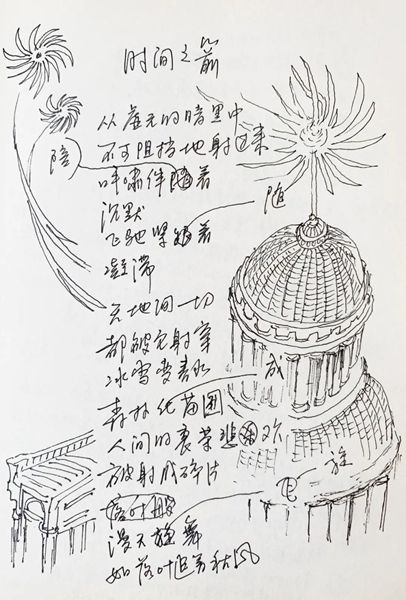 时间之箭
从虚无的暗黑中
不可阻挡地射过来
陪
呼啸伴随着
随
沉默
飞驰着
凝滞
天地间一切
都被它射穿
冰雪变春水
成
森林化苗圃
人间的衰荣悲欢
被射成碎片
旋
漫天旋舞
如落叶追着秋风